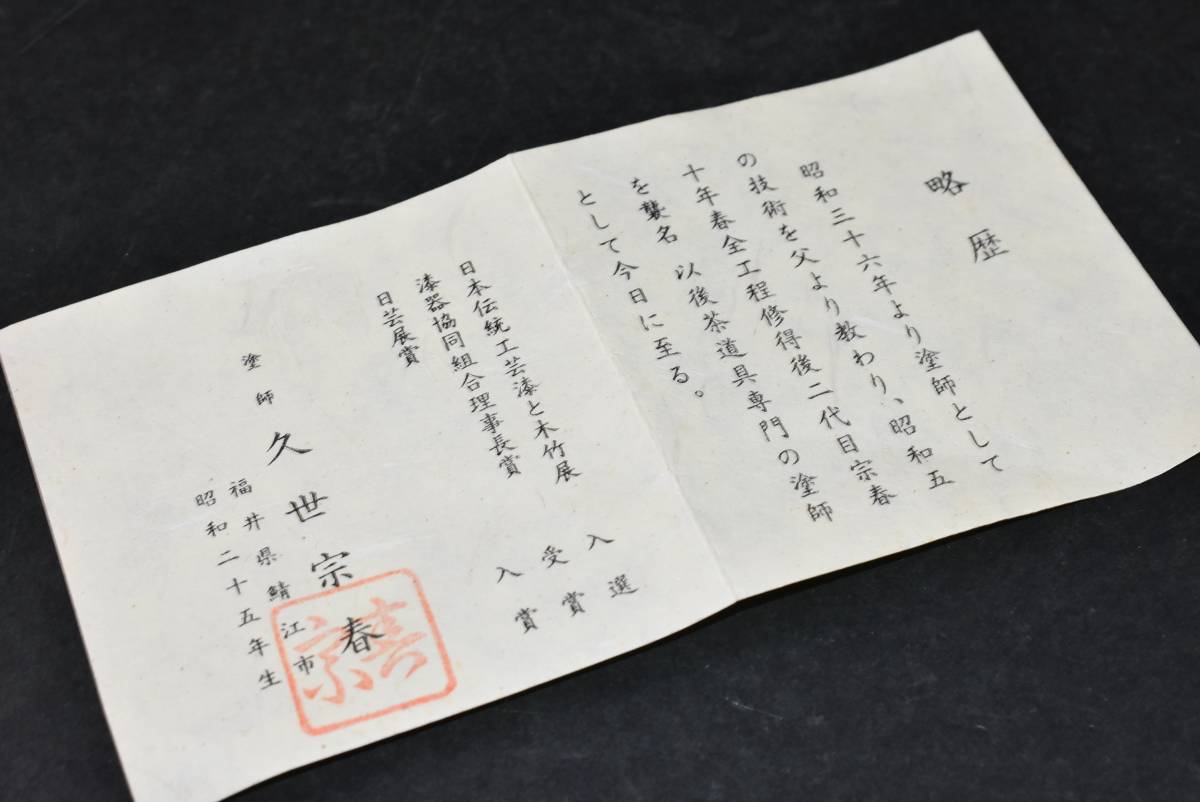 略歴
昭和三十六年より塗師として
の技術を父より教わり、昭和五
十年春全工程修得後二代目宗春
を襲名 以後茶道具専門の塗師
として今日に至る。
日本伝統工芸漆と木竹展 入選
漆器協同組合理事長賞 受賞
日芸展賞 入賞
塗師 久世宗春
福井県鯖江市
昭和二十五年生
宗春